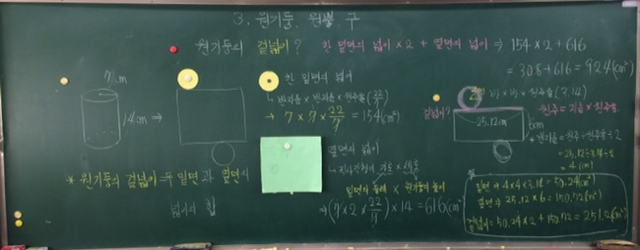 3. 원기둥, 원뿔, 구
원기둥의 겉넓이? 한 밑면의 넓이 × 2 + 옆면의 넓이 ⇒ 154 × 2 + 616
= 308 + 616 = 924(cm²)
7cm
14cm ⇒
한 밑면의 넓이
↳ 반지름 × 반지름 × 원주율 (22/7)
→ 7 × 7 × 22/7 = 154(cm²)
옆면의 넓이
↳ 직사각형의 가로 × 세로
밑면의 둘레 × 원기둥의 높이
⇒ (7 × 2 × 22/7) × 14 = 616(cm²)
* 원기둥의 겉넓이 = 두 밑면과 옆면의
넓이의 합
겉넓이?
(3.14)
원주 = 지름 × 원주율
25.12cm
6cm
* 반지름 = 원주 ÷ 원주율 ÷ 2
= 25.12 ÷ 3.14 ÷ 2
= 4(cm)
밑면 ⇒ 4 × 4 × 3.14 = 50.24(cm²)
옆면 ⇒ 25.12 × 6 = 150.72(cm²)
겉넓이 = 50.24 × 2 + 150.72 = 251.2(cm²)